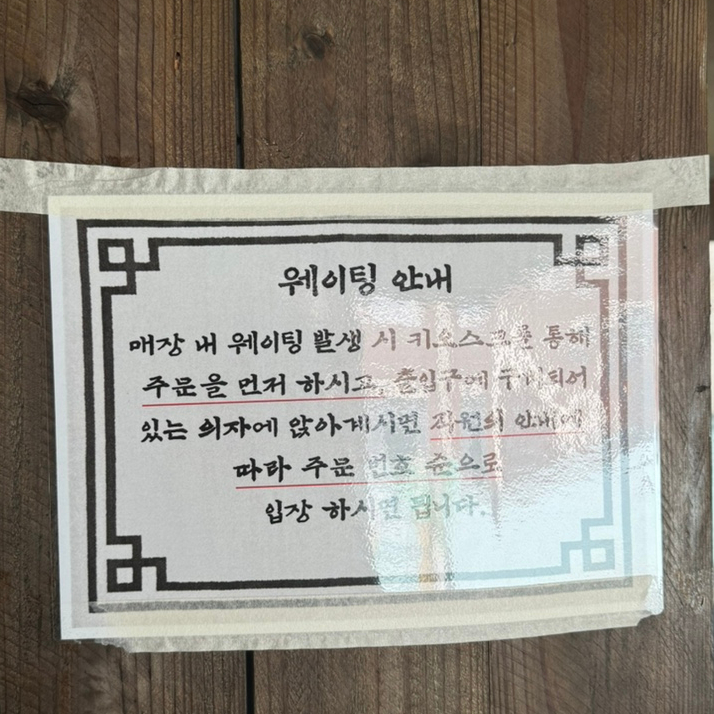 웨이팅 안내
매장 내 웨이팅 발생 시 키오스크를 통해
주문을 먼저 하시고, 출입구에 구비되어
있는 의자에 앉아계시면 직원의 안내에
따라 주문 번호 순으로
입장 하시면 됩니다.